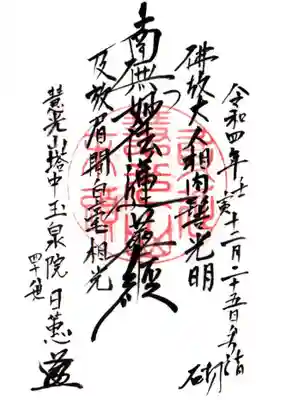 令和四年壬寅十二月二十五日
佛放大人相肉髻光明
南無妙法蓮華經
及放眉間白毫相光
慧光山塔中玉泉院日